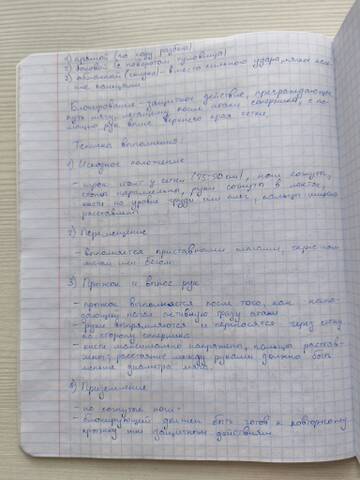 1) прямой (по ходу разбега)
2) боковой (с поворотом туловища)
3) обманный (скидка) - вместо сильного удара мягкое
Блокирование - защитное действие, преграждающее
путь мячу, летящему после атаки соперника, с по-
мощью рук выше верхнего края сетки.
Техника выполнения:
1) Исходное положение
- игрок стоит у сетки (45-50 см), ноги согнуты,
стопы параллельны, руки согнуты в локтях,
кисти на уровне груди или плеч, пальцы широко
расставлены
2) Перемещение
- выполняется приставными шагами,
шагом или бегом.
3) Прыжок и вынос рук
- прыжок выполняется после того, как напа-
дающий начал активную фазу атаки
- руки выпрямляются и переносятся через сетку
на сторону соперника
- кисти максимально напряжены, пальцы расстав-
лены, расстояние между руками должно быть
меньше диаметра мяча.
4) Приземление
- на согнутые ноги.
- блокирующий должен быть готов к повторному
прыжку или защитным действиям.